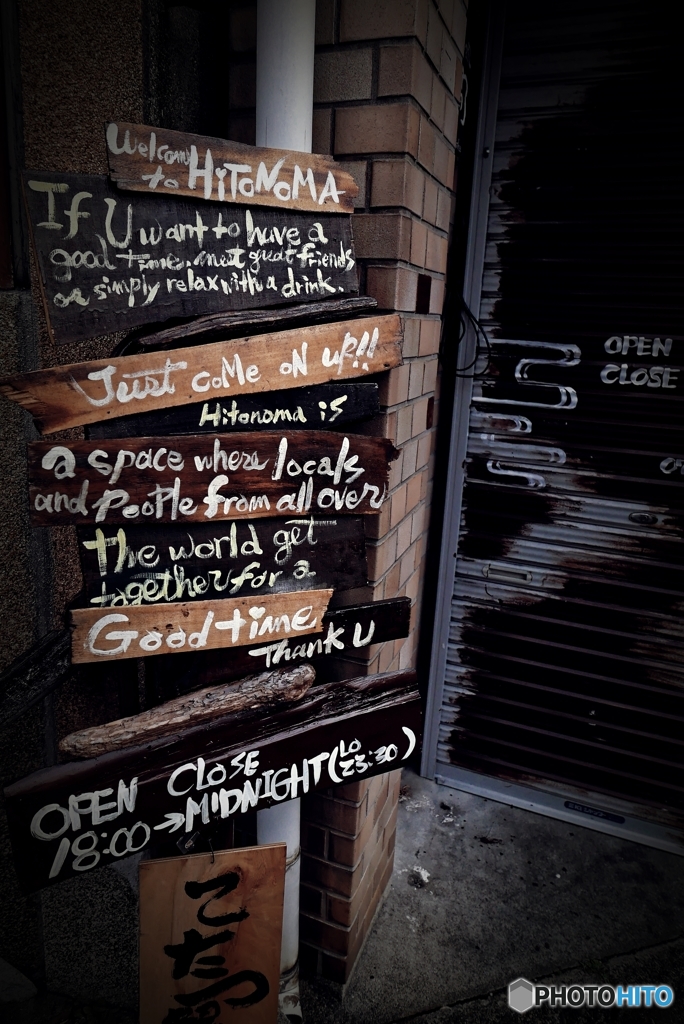 Welcome
to HiTONOMA
If U want to have a
good time, meet great friends
or simply relax with a drink.
Just coMe oN uP!!
Hitonoma iS
a space where locals
and PeoPle from all over
the world get
together for a
Good time
Thank U
OPEN CLOSE
18:00→MIDNIGHT(LO 23:30)
OPEN
CLOSE
こたつ
PHOTOHITO